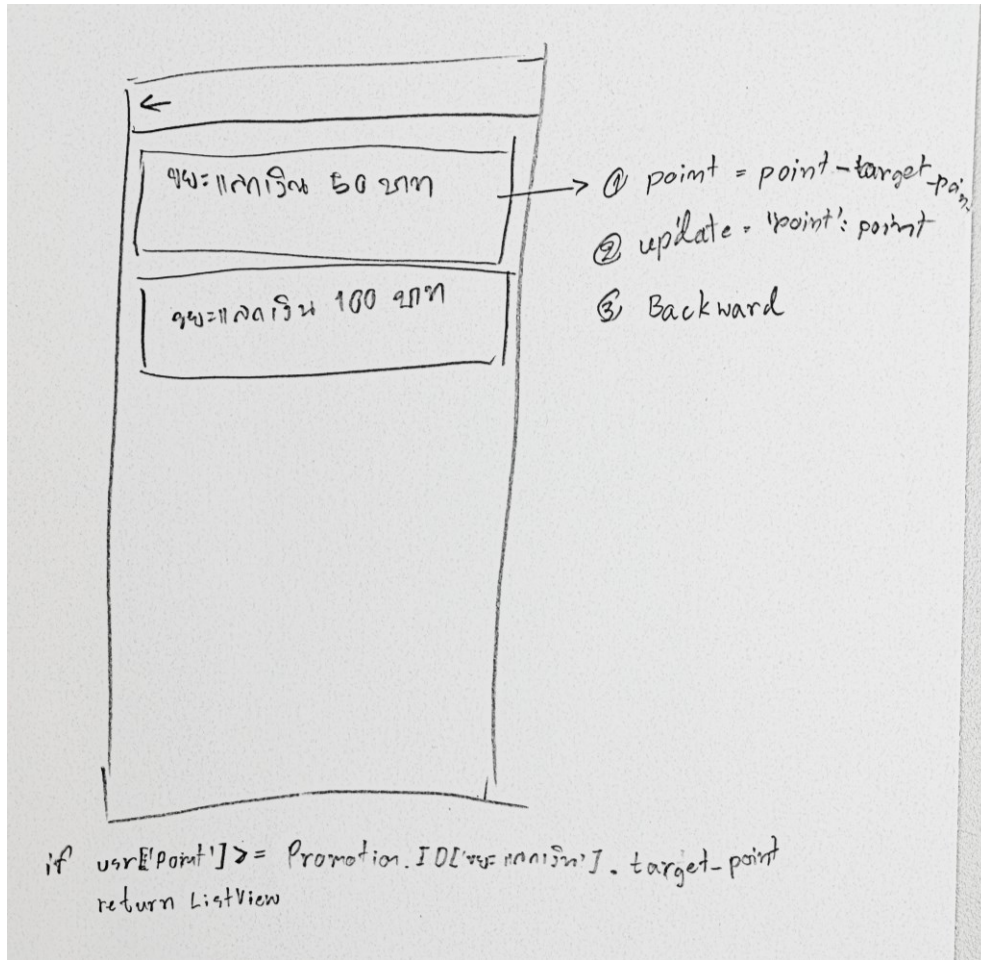 ←
ขยะแลกเงิน 50 บาท
ขยะแลกเงิน 100 บาท
① point = point - target_poin
② update = 'point': point
③ Backward
if usr['Point'] >= Promotion.ID['ขยะแลกเงิน'].target_point
return ListView